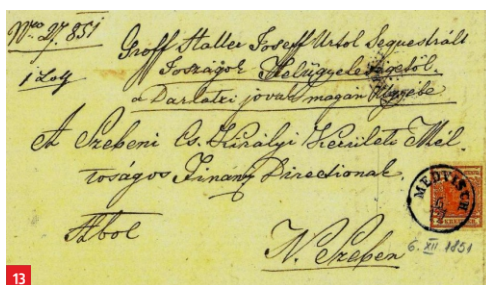 Nro 27. 851
1 Loth
Groff Haller Joseff Urtol Sequestrált
Joszágok Helügyelőségétől.
a Darlatzi jovak magán Ügyébe
A Szebeni Cs. Királyi Kerületi Mél-
toságos Finánz Directionak.
Abol
N. Szeben
MEDVISCH
6
KREUZER
6. XII 1851
13